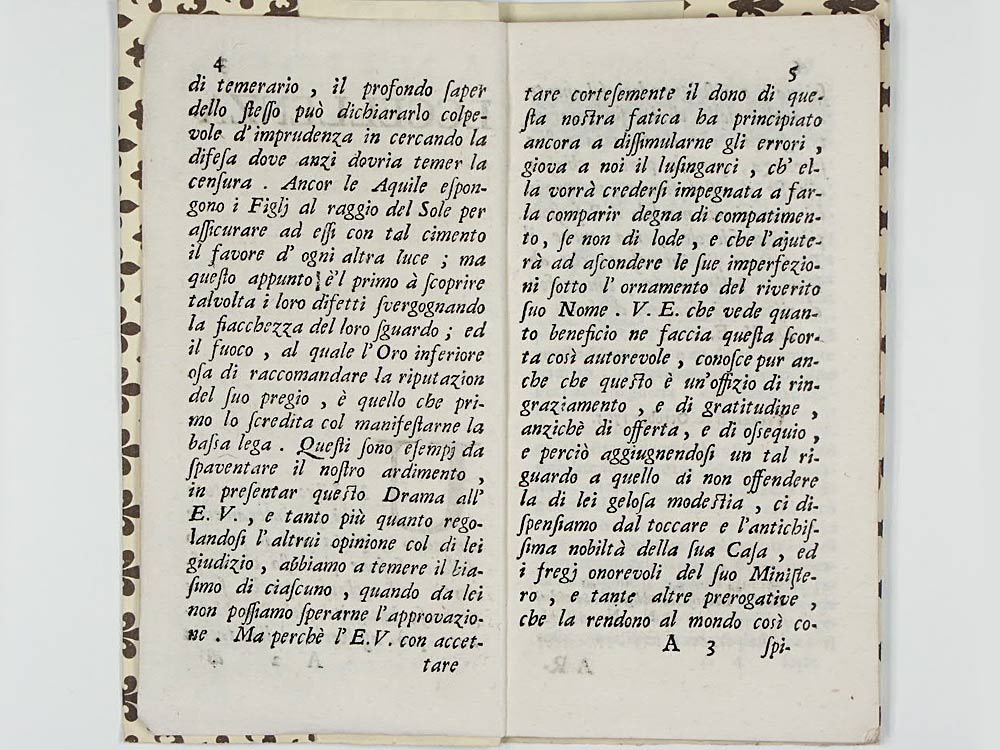 4
di temerario , il profondo ſaper
dello ſteſſo può dichiararlo colpe-
vole d'imprudenza in cercando la
difeſa dove anzi dovria temer la
cenſura . Ancor le Aquile eſpon-
gono i Figlj al raggio del Sole per
aſſicurare ad eſſi con tal cimento
il favore d' ogni altra luce ; ma
queſto appunto è'l primo à ſcoprire
talvolta i loro difetti ſvergognando
la fiacchezza del loro ſguardo ; ed
il fuoco , al quale l'Oro inferiore
oſa di raccomandare la riputazion
del ſuo pregio , è quello che pri-
mo lo ſcredita col manifeſtarne la
baſsa lega . Queſti ſono eſempj da
ſpaventare il noſtro ardimento ,
in preſentar queſto Drama all'
E. V. , e tanto più quanto rego-
landoſi l'altrui opinione col di lei
giudizio , abbiamo a temere il bia-
ſimo di ciaſcuno , quando da lei
non poſſiamo ſperarne l'approvazio-
ne . Ma perchè l'E.V. con accet-
tare
5
tare corteſemente il dono di que-
ſta noſtra fatica ha principiato
ancora a diſſimularne gli errori ,
giova a noi il luſingarci , ch' el-
la vorrà crederſi impegnata a far-
la comparir degna di compatimen-
to, ſe non di lode , e che l'ajute-
rà ad aſcondere le ſue imperfezio-
ni ſotto l' ornamento del riverito
ſuo Nome . V. E. che vede quan-
to beneficio ne faccia queſta ſcor-
ta così autorevole , conoſce pur an-
che che queſto è un'offizio di rin-
graziamento , e di gratitudine ,
anzichè di offerta, e di oſſequio ,
e perciò aggiugnendoſi un tal ri-
guardo a quello di non offendere
la di lei geloſa modeſtia , ci di-
ſpenſiamo dal toccare e l'antichiſ-
ſima nobiltà della ſua Caſa , ed
i fregj onorevoli del ſuo Miniſte-
ro , e tante altre prerogative ,
che la rendono al mondo così co-
A 3 ſpi-